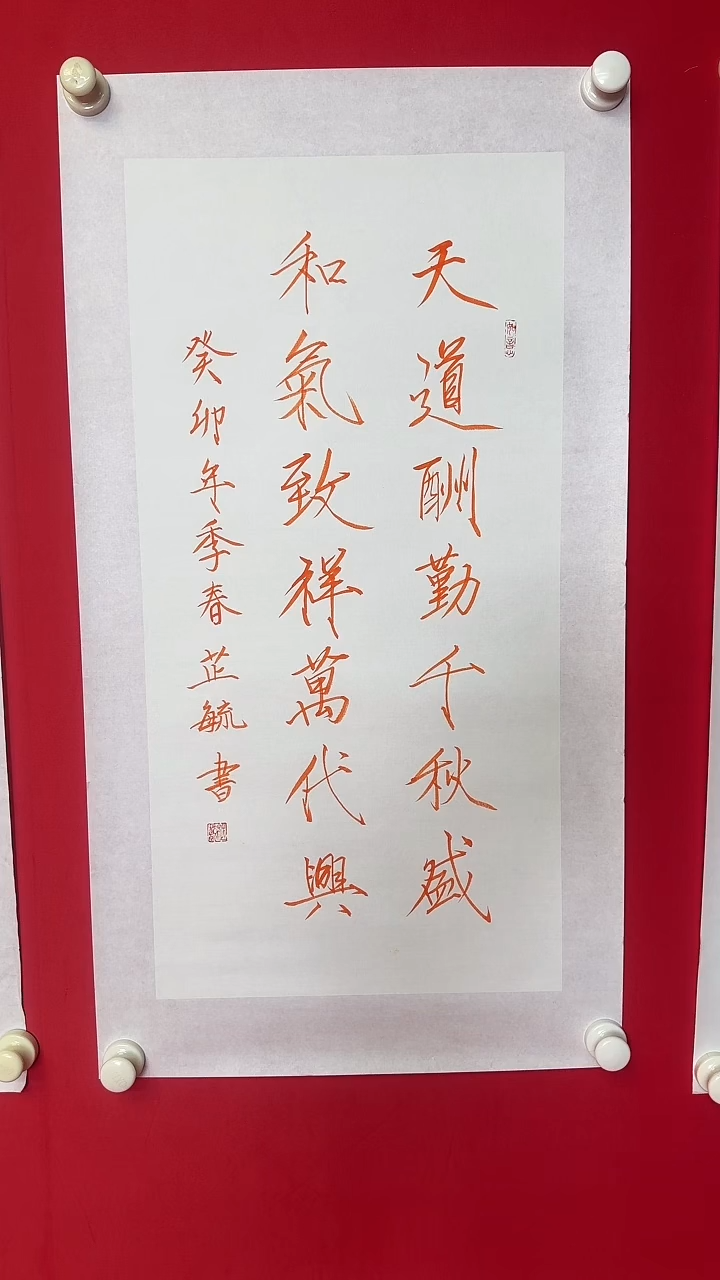 天道酬勤千秋盛
和氣致祥萬代興
癸卯年季春芷毓書